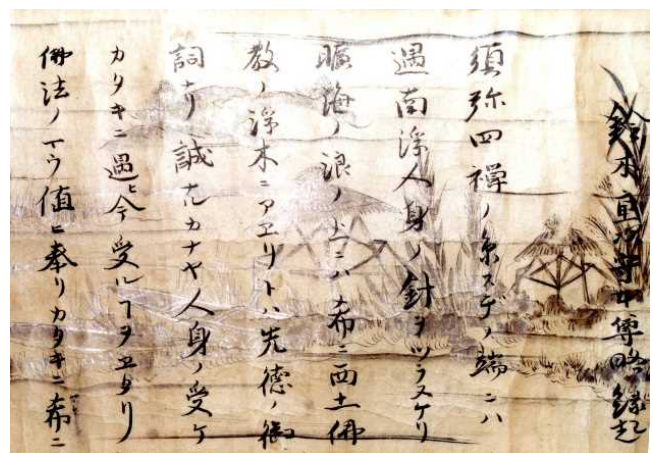 鈴木重?守本尊略縁起
須弥四禅ノ糸スデノ端ニハ
過南浮人身ノ針ヲツラヌケリ
曠海ノ浪ノ上ニハ希ニ西土佛
教ノ浮木ニアエリトハ先徳ノ御
詞ナリ誠ナルカナヤ人身ノ受ケ
カタキニ遇ヒ今受ルヿヲエタリ
佛法ノマウ値ヒ奉リカタキニ希ニ